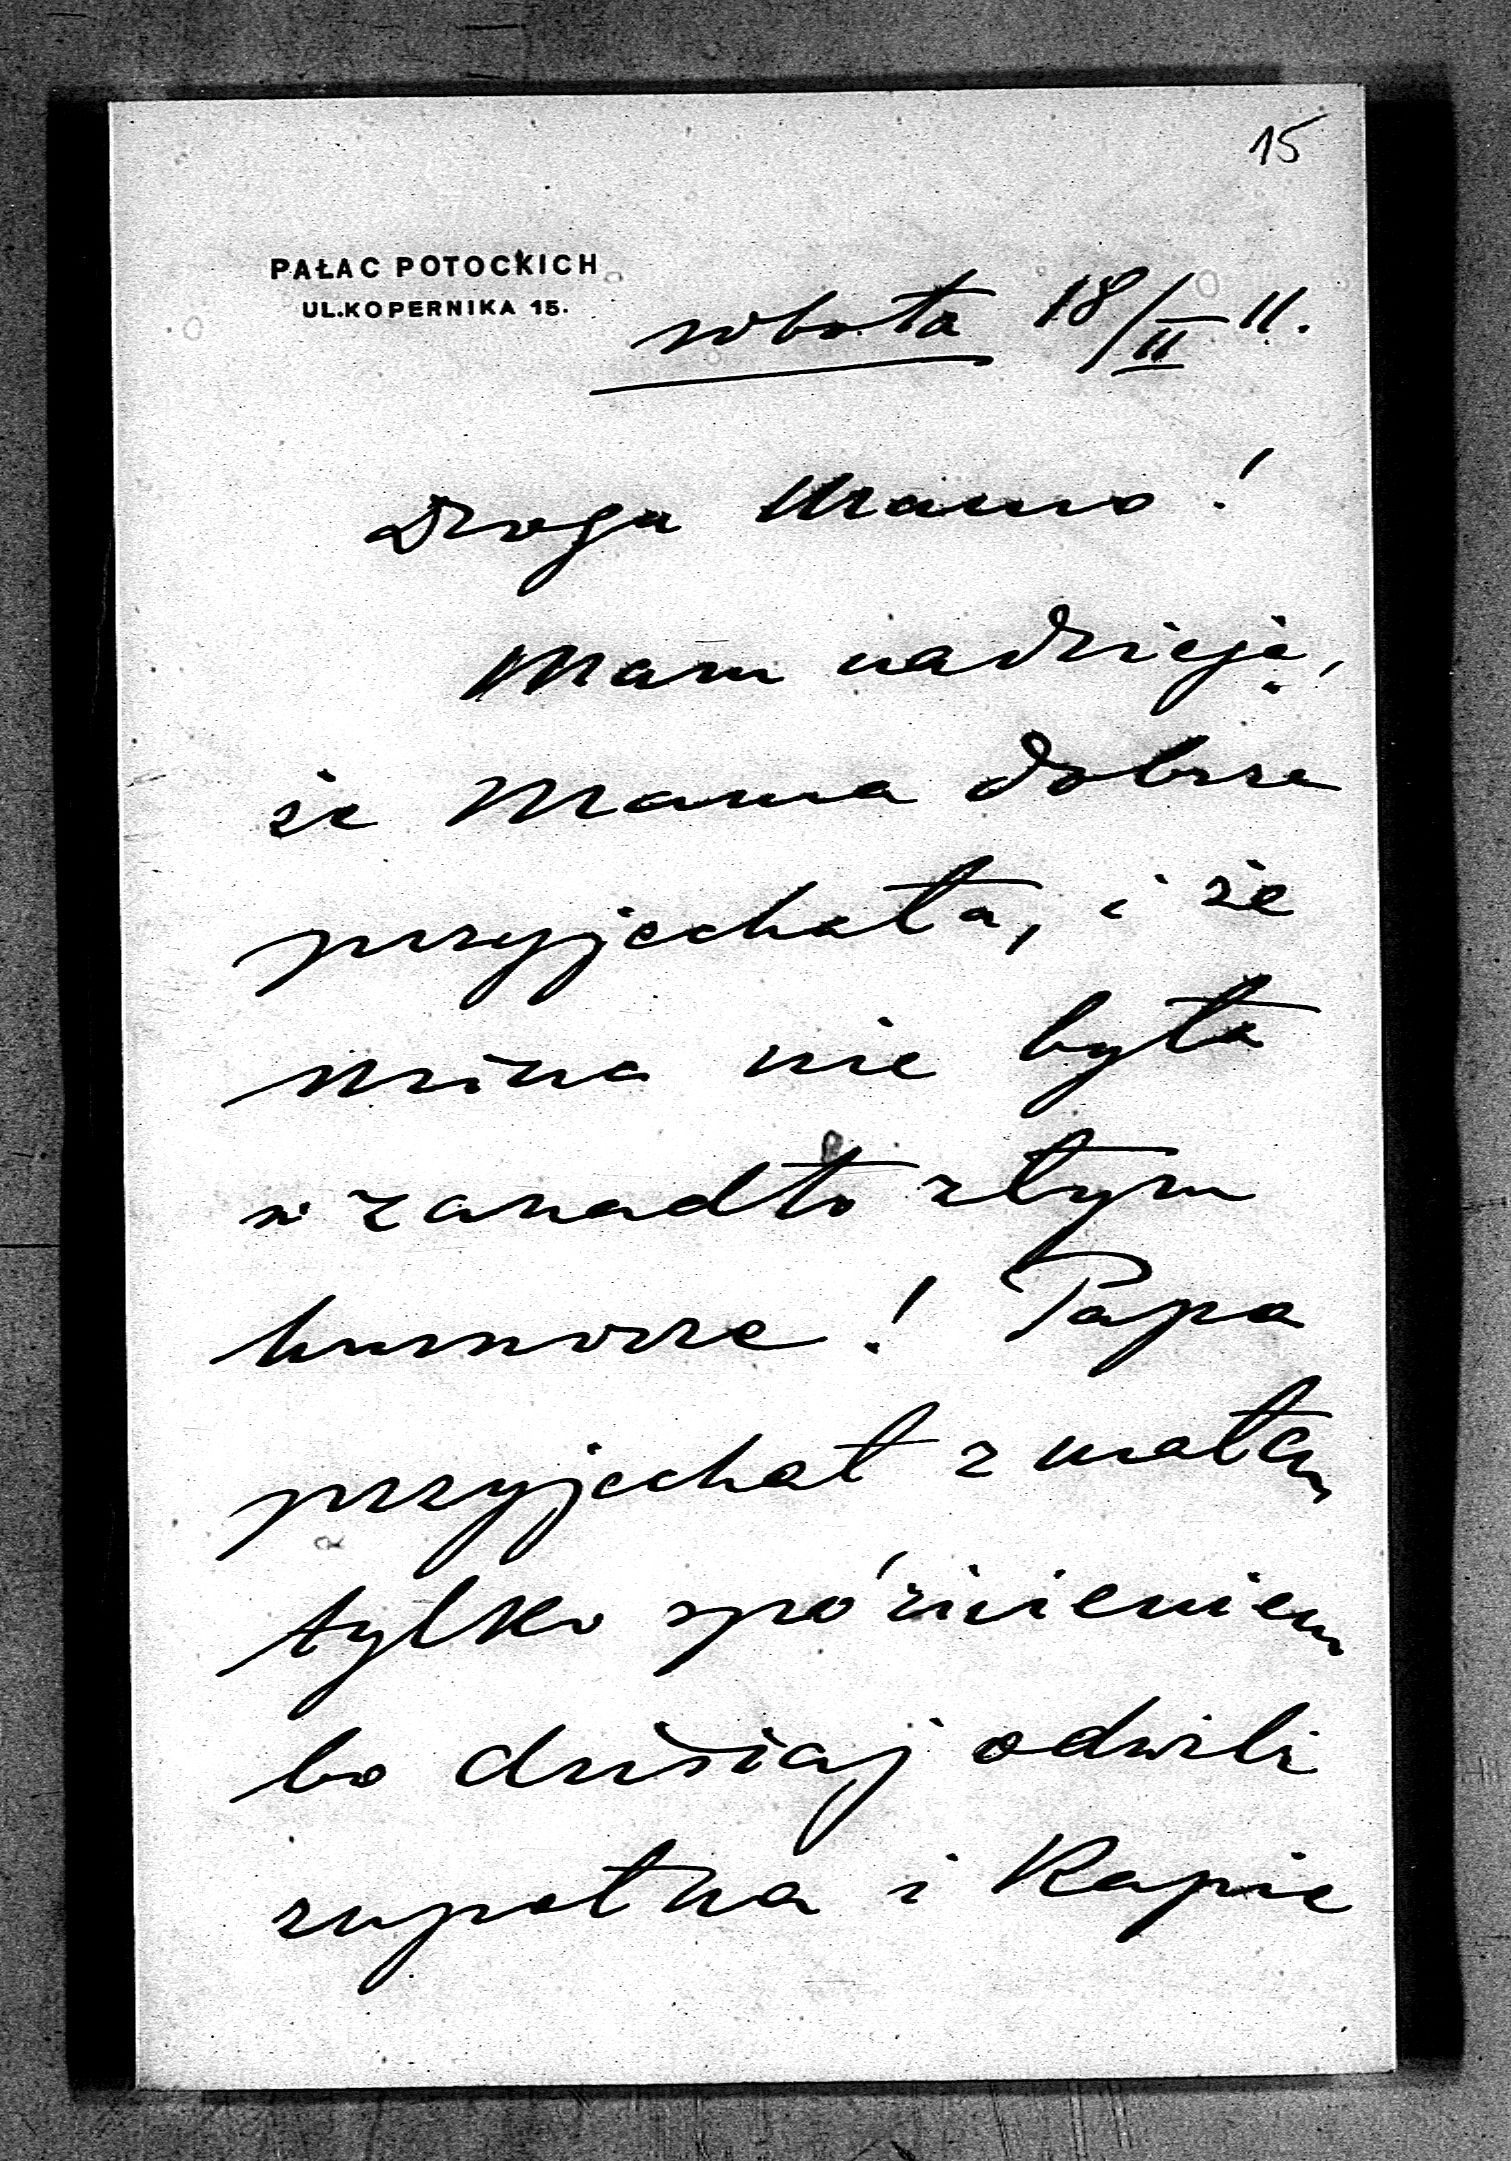 15
PAŁAC POTOCKICH
UL. KOPERNIKA 15.
sobota 18/II 11.
Droga Mamo!
Mam nadzieję,
że Mama dobrze
przyjechała, i że
mina nie była
w zanadto złym
humorze! Papa
przyjechał z małem
tylko spóźnieniem
bo dzisiaj odwilż
zupełna i kapie